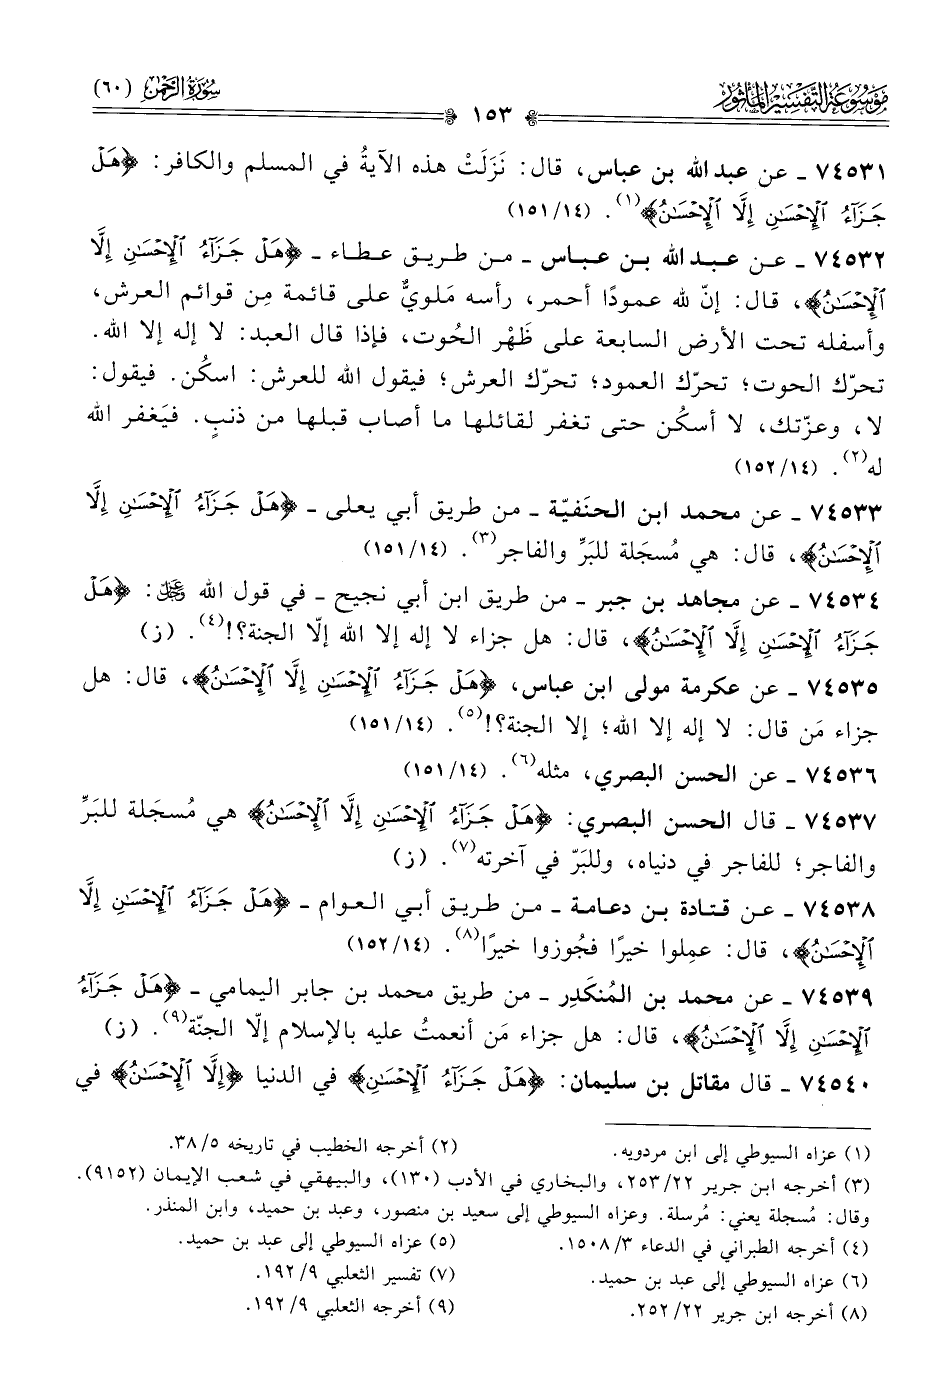 موسوعة التفسير المأثور
١٥٣
سورة الرحمن (٦٠)
٧٤٥٣١ ـ عن عبد الله بن عباس، قال: نَزَلَتْ هذه الآيةُ في المسلم والكافر: ﴿هَلۡ
جَزَآءُ ٱلۡإِحۡسَٰنِ إِلَّا ٱلۡإِحۡسَٰنُ﴾(١). (١٥١/١٤)
٧٤٥٣٢ ـ عن عبد الله بن عباس ـ من طريق عطاء ـ ﴿هَلۡ جَزَآءُ ٱلۡإِحۡسَٰنِ إِلَّا
ٱلۡإِحۡسَٰنُ﴾، قال: إنّ لله عمودًا أحمر، رأسه مَلويٌّ على قائمة مِن قوائم العرش،
وأسفله تحت الأرض السابعة على ظَهْر الحُوت، فإذا قال العبد: لا إله إلا الله.
تحرّك الحوت؛ تحرّك العمود؛ تحرّك العرش؛ فيقول الله للعرش: اسكُن. فيقول:
لا، وعزّتك، لا أسكُن حتى تغفر لقائلها ما أصاب قبلها من ذنبٍ. فيَغفر الله
له(٢). (١٥٢/١٤)
٧٤٥٣٣ ـ عن محمد ابن الحنَفيّة ـ من طريق أبي يعلى ـ ﴿هَلۡ جَزَآءُ ٱلۡإِحۡسَٰنِ إِلَّا
ٱلۡإِحۡسَٰنُ﴾، قال: هي مُسجَلة للبَرِّ والفاجر(٣). (١٥١/١٤)
٧٤٥٣٤ ـ عن مجاهد بن جبر ـ من طريق ابن أبي نجيح ـ في قول الله ﷿: ﴿هَلۡ
جَزَآءُ ٱلۡإِحۡسَٰنِ إِلَّا ٱلۡإِحۡسَٰنُ﴾، قال: هل جزاء لا إله إلا الله إلّا الجنة؟!(٤). (ز)
٧٤٥٣٥ ـ عن عكرمة مولى ابن عباس، ﴿هَلۡ جَزَآءُ ٱلۡإِحۡسَٰنِ إِلَّا ٱلۡإِحۡسَٰنُ﴾، قال: هل
جزاء مَن قال: لا إله إلا الله؛ إلا الجنة؟!(٥). (١٥١/١٤)
٧٤٥٣٦ ـ عن الحسن البصري، مثله(٦). (١٥١/١٤)
٧٤٥٣٧ ـ قال الحسن البصري: ﴿هَلۡ جَزَآءُ ٱلۡإِحۡسَٰنِ إِلَّا ٱلۡإِحۡسَٰنُ﴾ هي مُسجَلة للبَرِّ
والفاجر؛ للفاجر في دنياه، وللبَرّ في آخرته(٧). (ز)
٧٤٥٣٨ ـ عن قتادة بن دعامة ـ من طريق أبي العوام ـ ﴿هَلۡ جَزَآءُ ٱلۡإِحۡسَٰنِ إِلَّا
ٱلۡإِحۡسَٰنُ﴾، قال: عمِلوا خيرًا فجُوزوا خيرًا(٨). (١٥٢/١٤)
٧٤٥٣٩ ـ عن محمد بن المُنكَدِر ـ من طريق محمد بن جابر اليمامي ـ ﴿هَلۡ جَزَآءُ
ٱلۡإِحۡسَٰنِ إِلَّا ٱلۡإِحۡسَٰنُ﴾، قال: هل جزاء مَن أنعمتُ عليه بالإسلام إلّا الجنّة(٩). (ز)
٧٤٥٤٠ ـ قال مقاتل بن سليمان: ﴿هَلۡ جَزَآءُ ٱلۡإِحۡسَٰنِ﴾ في الدنيا ﴿إِلَّا ٱلۡإِحۡسَٰنُ﴾ في
(١) عزاه السيوطي إلى ابن مردويه.
(٢) أخرجه الخطيب في تاريخه ٣٨/٥.
(٣) أخرجه ابن جرير ٢٥٣/٢٢، والبخاري في الأدب (١٣٠)، والبيهقي في شعب الإيمان (٩١٥٢).
وقال: مُسجلة يعني: مُرسلة. وعزاه السيوطي إلى سعيد بن منصور، وعبد بن حميد، وابن المنذر.
(٤) أخرجه الطبراني في الدعاء ١٥٠٨/٣.
(٥) عزاه السيوطي إلى عبد بن حميد.
(٦) عزاه السيوطي إلى عبد بن حميد.
(٧) تفسير الثعلبي ١٩٢/٩.
(٨) أخرجه ابن جرير ٢٥٢/٢٢.
(٩) أخرجه الثعلبي ١٩٢/٩.